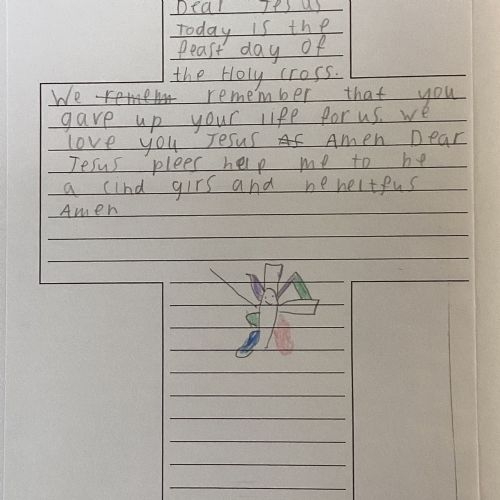 Dear Jesus
Today is the
feast day of
the Holy cross.
We rememn remember that you
gave up your life for us. we
love you Jesus As Amen Dear
Jesus plees help me to be
a cind girs and heheltfus
Amen